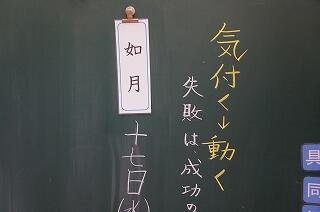 気付く→動く
失敗は、成功の
如月
十七日(水)
具
同